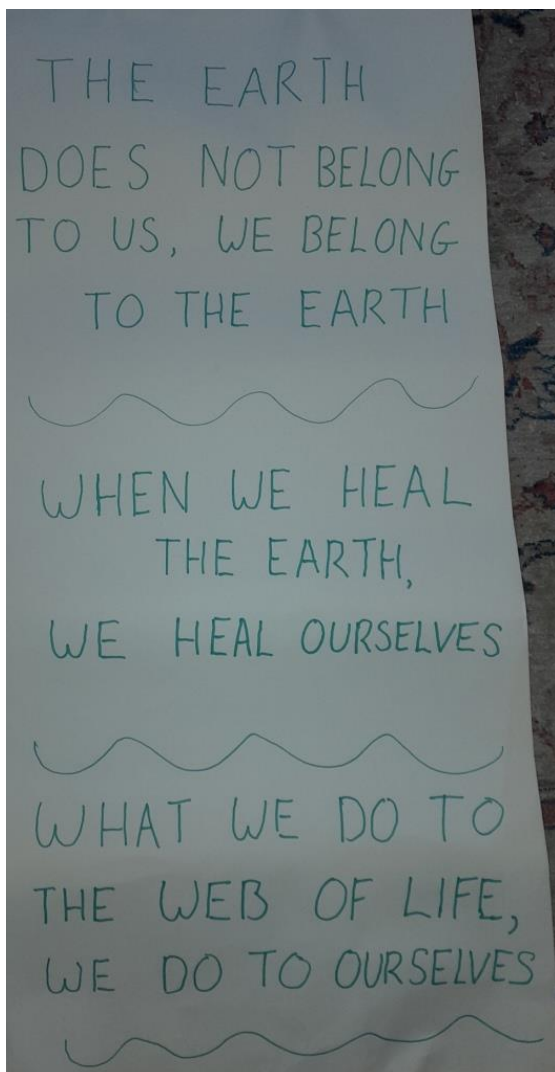 THE EARTH
DOES NOT BELONG
TO US, WE BELONG
TO THE EARTH
WHEN WE HEAL
THE EARTH,
WE HEAL OURSELVES
WHAT WE DO TO
THE WEB OF LIFE,
WE DO TO OURSELVES